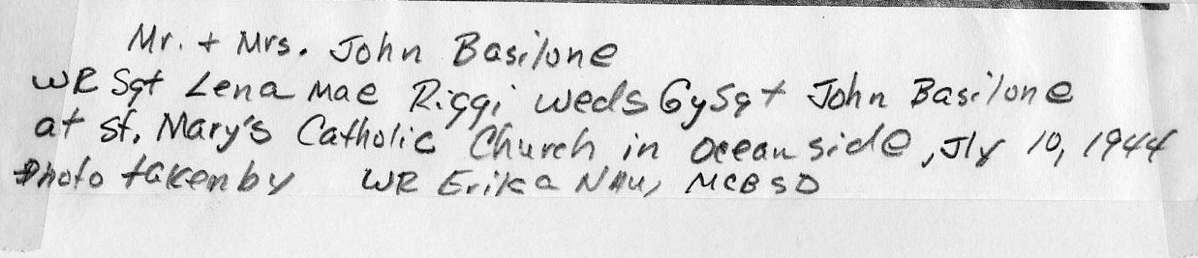 Mr. + Mrs. John Basilone
WR Sgt Lena Mae Riggi weds GySgt John Basilone
at St. Mary's Catholic Church in Oceanside, Jly 10, 1944
Photo taken by WR Erika Nau, MCB SD